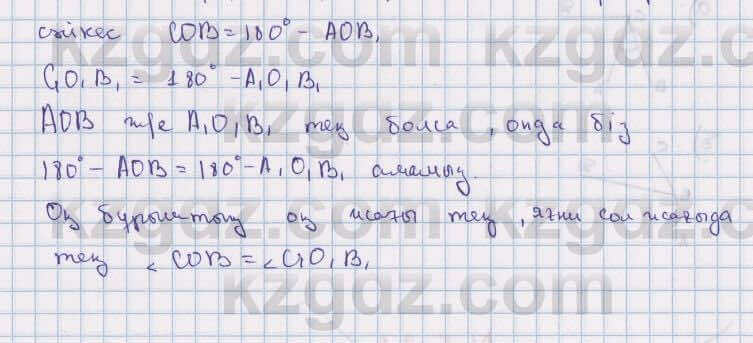 сәйкес COB = 180° - AOB,
C₁O₁B₁ = 180° - A₁O₁B₁
AOB ж/е A₁O₁B₁ тең болса, онда біз
180° - AOB = 180° - A₁O₁B₁ аламыз.
Оң бұрыштың оң жағы тең, яғни сол жағыда
тең ∠COB = ∠C₁O₁B₁
kzgdz.com
kzgdz.com
kzgdz.com
kzgdz.com